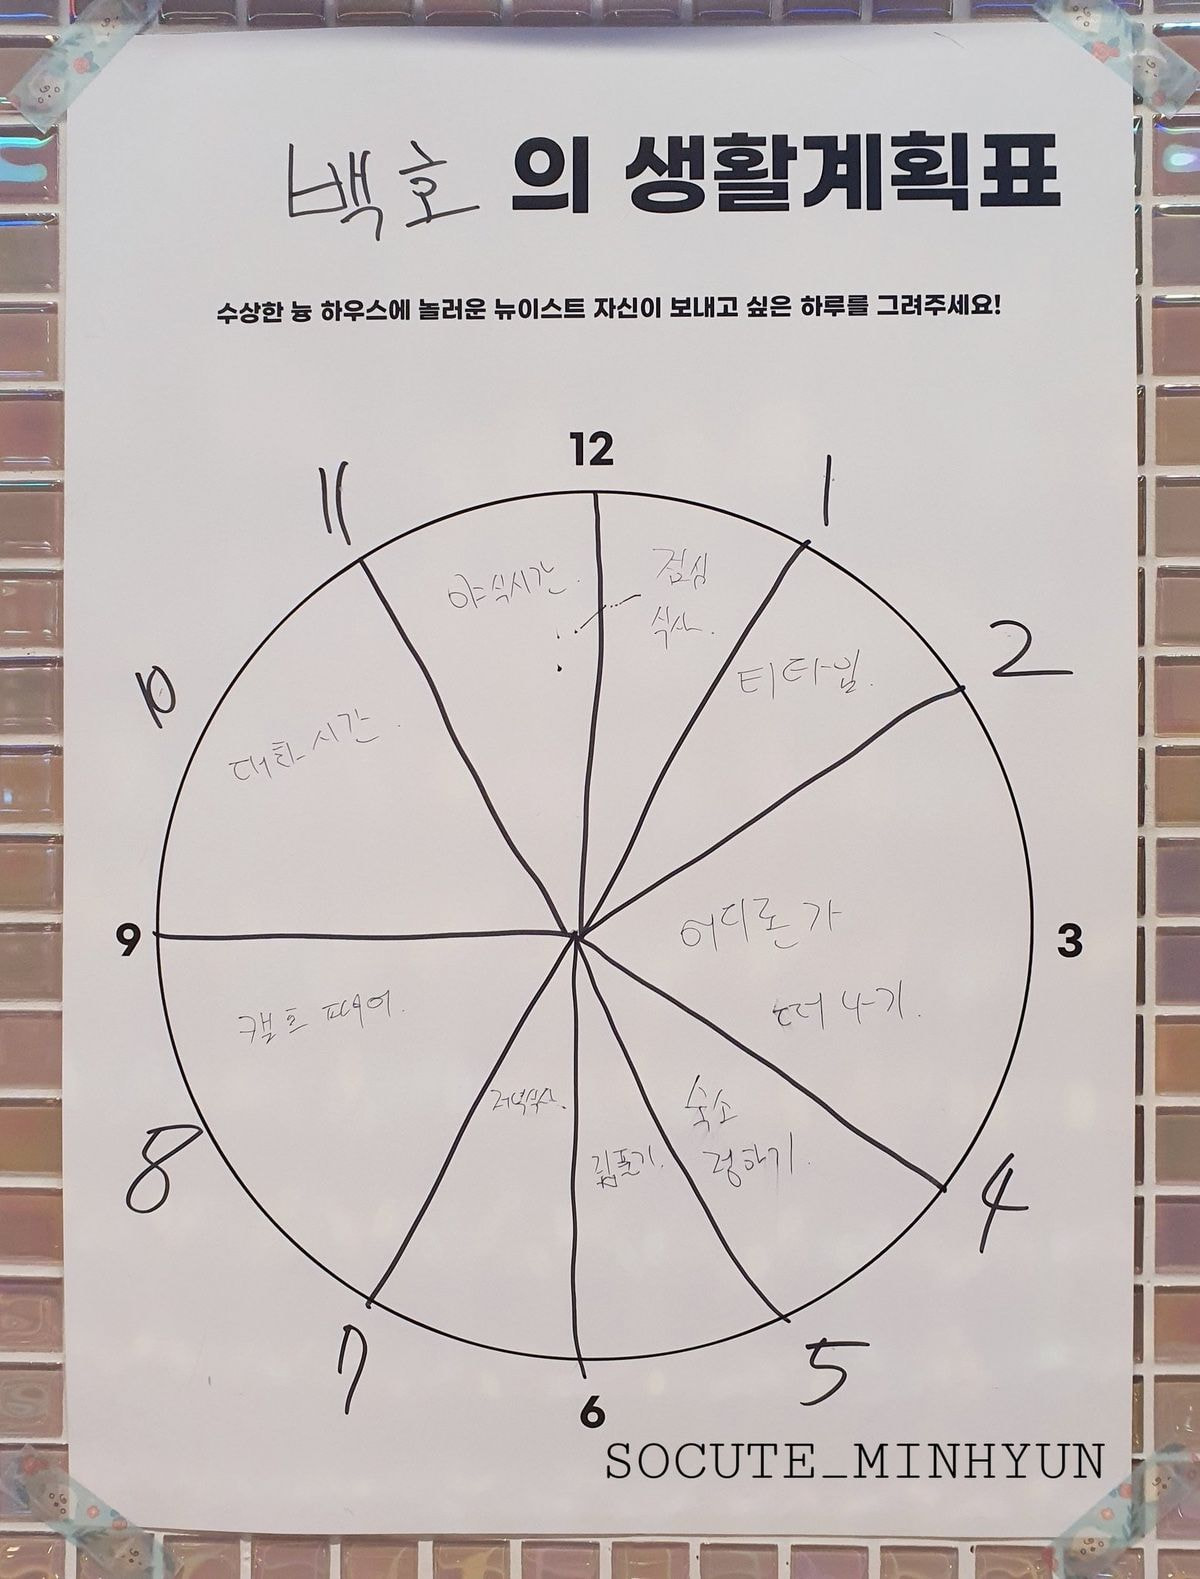 백호 의 생활계획표
수상한 늉 하우스에 놀러운 뉴이스트 자신이 보내고 싶은 하루를 그려주세요!
12
11
1
야식시간.
점심
식사.
2
티타임.
10
대화시간.
어디론가
떠나기.
9
3
캠프파이어.
저녁식사.
숙소
정하기.
짐풀기.
8
4
7
5
6
SOCUTE_MINHYUN